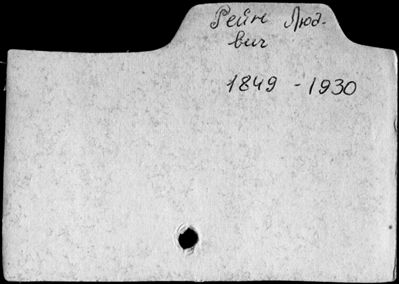 Рейн Люд-
виг
1849 - 1930